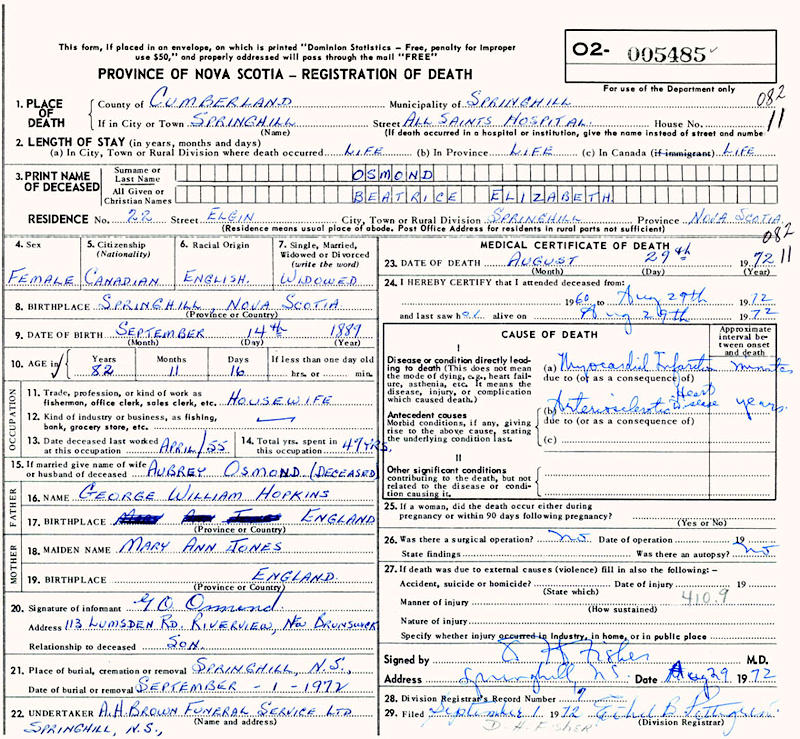 This form, if placed in an envelope, on which is printed "Dominion Statistics – Free, penalty for improper
use $50," and properly addressed will pass through the mail "FREE"
PROVINCE OF NOVA SCOTIA – REGISTRATION OF DEATH
O2- 005485
For use of the Department only
082
11
1. PLACE OF DEATH
County of CUMBERLAND Municipality of SPRINGHILL
If in City or Town SPRINGHILL Street ALL SAINTS HOSPITAL. House No.
(Name) (If death occurred in a hospital or institution, give the name instead of street and numbe
2. LENGTH OF STAY (in years, months and days)
(a) In City, Town or Rural Division where death occurred LIFE (b) In Province LIFE (c) In Canada (if immigrant) LIFE
3. PRINT NAME OF DECEASED
Surname or Last Name OSMOND
All Given or Christian Names BEATRICE ELIZABETH
RESIDENCE No. 22 Street ELGIN City, Town or Rural Division SPRINGHILL Province NOVA SCOTIA
(Residence means usual place of abode. Post Office Address for residents in rural parts not sufficient)
082
11
4. Sex FEMALE
5. Citizenship (Nationality) CANADIAN
6. Racial Origin ENGLISH.
7. Single, Married, Widowed or Divorced (write the word) WIDOWED
8. BIRTHPLACE SPRINGHILL, NOVA SCOTIA
(Province or Country)
9. DATE OF BIRTH SEPTEMBER 14th 1889
(Month) (Day) (Year)
10. AGE in Years Months Days If less than one day old
82 11 16 hrs. or min.
OCCUPATION
11. Trade, profession, or kind of work as fishermon, office clerk, sales clerk, etc. HOUSEWIFE
12. Kind of industry or business, as fishing, bank, grocery store, etc.
13. Date deceased last worked at this occupation APRIL/55
14. Total yrs. spent in this occupation 47 YRS.
15. If married give name of wife or husband of deceased AUBREY OSMOND (DECEASED)
FATHER
16. NAME GEORGE WILLIAM HOPKINS
17. BIRTHPLACE ENGLAND
(Province or Country)
MOTHER
18. MAIDEN NAME MARY ANN JONES
19. BIRTHPLACE ENGLAND.
(Province or Country)
20. Signature of informant G O Osmond
Address 113 LUMSDEN RD. RIVERVIEW, NEW BRUNSWICK
Relationship to deceased SON.
21. Place of burial, cremation or removal SPRINGHILL, N.S.,
Date of burial or removal SEPTEMBER - 1 - 1972
22. UNDERTAKER A.H. BROWN FUNERAL SERVICE LTD
(Name and address)
SPRINGHILL, N.S.,
MEDICAL CERTIFICATE OF DEATH
23. DATE OF DEATH AUGUST 29th 1972
(Month) (Day) (Year)
24. I HEREBY CERTIFY that I attended deceased from:
1960 to Aug 29th 1972
and last saw her alive on Aug 29th 1972
CAUSE OF DEATH
Approximate interval between onset and death
I
Disease or condition directly leading to death (This does not mean the mode of dying, e.g., heart failure, asthenia, etc. It means the disease, injury, or complication which caused death.)
(a) Myocardial Infarction minutes
due to (or as a consequence of)
Antecedent causes
Morbid conditions, if any, giving rise to the above cause, stating the underlying condition last.
(b) Arteriosclerotic Heart Disease years.
due to (or as a consequence of)
(c)
II
Other significant conditions
contributing to the death, but not related to the disease or condition causing it.
25. If a woman, did the death occur either during
pregnancy or within 90 days following pregnancy?
(Yes or No)
26. Was there a surgical operation? no Date of operation 19
State findings Was there an autopsy? no
27. If death was due to external causes (violence) fill in also the following:–
Accident, suicide or homicide? Date of injury 19
(State which)
Manner of injury 410.9
(How sustained)
Nature of injury
Specify whether injury occurred in industry, in home, or in public place
Signed by H Fisher M.D.
Address Springhill, N.S. Date Aug 29 1972
28. Division Registrar's Record Number 9
29. Filed September 1 1972 Ethel B
(Division Registrar)
D. H. FISHER